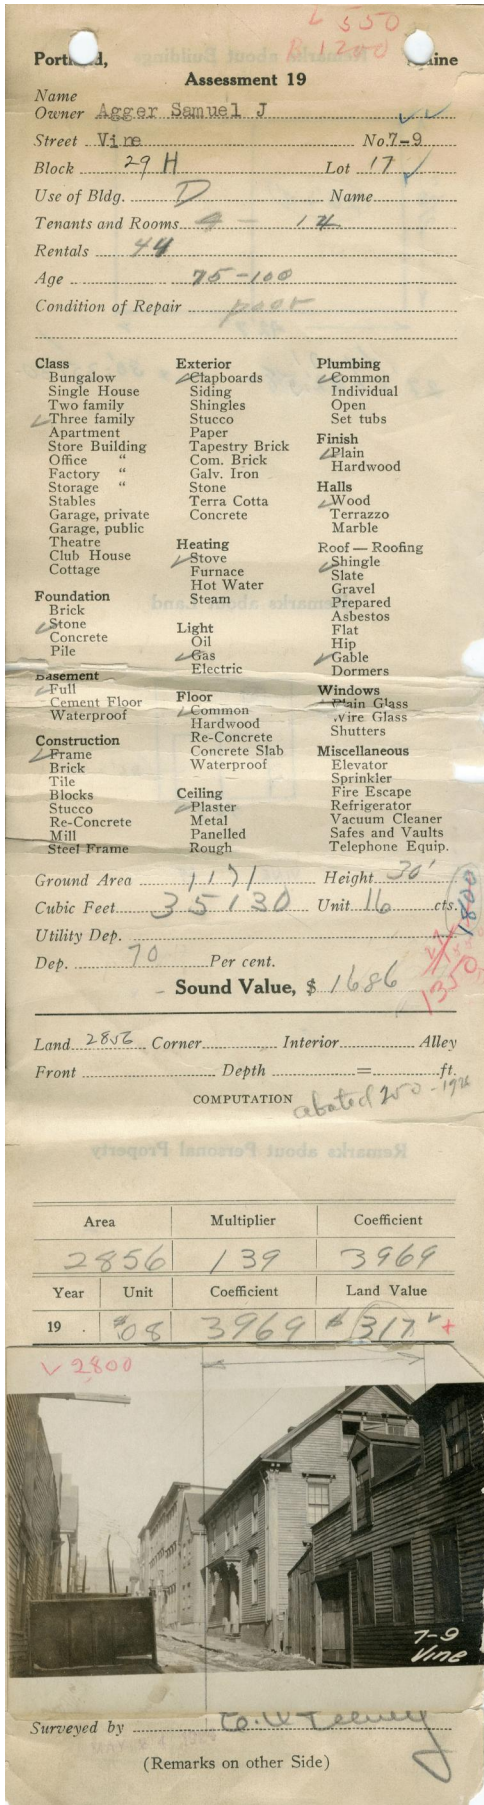 L 550
B 1200
Portland, Maine
Assessment 19
Name
Owner Agger Samuel J
Street Vine No. 7-9
Block 29 H Lot 17
Use of Bldg. D Name
Tenants and Rooms 4 - 14
Rentals 44
Age 75-100
Condition of Repair poor
Class
Bungalow
Single House
Two family
✓ Three family
Apartment
Store Building
Office "
Factory "
Storage "
Stables
Garage, private
Garage, public
Theatre
Club House
Cottage
Foundation
Brick
✓ Stone
Concrete
Pile
Basement
✓ Full
Cement Floor
Waterproof
Construction
✓ Frame
Brick
Tile
Blocks
Stucco
Re-Concrete
Mill
Steel Frame
Exterior
✓ Clapboards
Siding
Shingles
Stucco
Paper
Tapestry Brick
Com. Brick
Galv. Iron
Stone
Terra Cotta
Concrete
Heating
✓ Stove
Furnace
Hot Water
Steam
Light
Oil
✓ Gas
Electric
Floor
✓ Common
Hardwood
Re-Concrete
Concrete Slab
Waterproof
Ceiling
✓ Plaster
Metal
Panelled
Rough
Plumbing
✓ Common
Individual
Open
Set tubs
Finish
✓ Plain
Hardwood
Halls
✓ Wood
Terrazzo
Marble
Roof — Roofing
✓ Shingle
Slate
Gravel
Prepared
Asbestos
Flat
Hip
✓ Gable
Dormers
Windows
✓ Plain Glass
Wire Glass
Shutters
Miscellaneous
Elevator
Sprinkler
Fire Escape
Refrigerator
Vacuum Cleaner
Safes and Vaults
Telephone Equip.
Ground Area 1171 Height 30'
Cubic Feet 35130 Unit 16 cts.
1800
Utility Dep.
Dep. 70 Per cent.
1350
Sound Value, $ 1686
Land 2856 Corner Interior Alley
Front Depth = ft.
COMPUTATION
abated 250 - 1926
Area Multiplier Coefficient
2856 139 3969
Year Unit Coefficient Land Value
19 . $08 3969 $317 ✓ +
✓ 2800
7-9
Vine
Surveyed by
(Remarks on other Side)